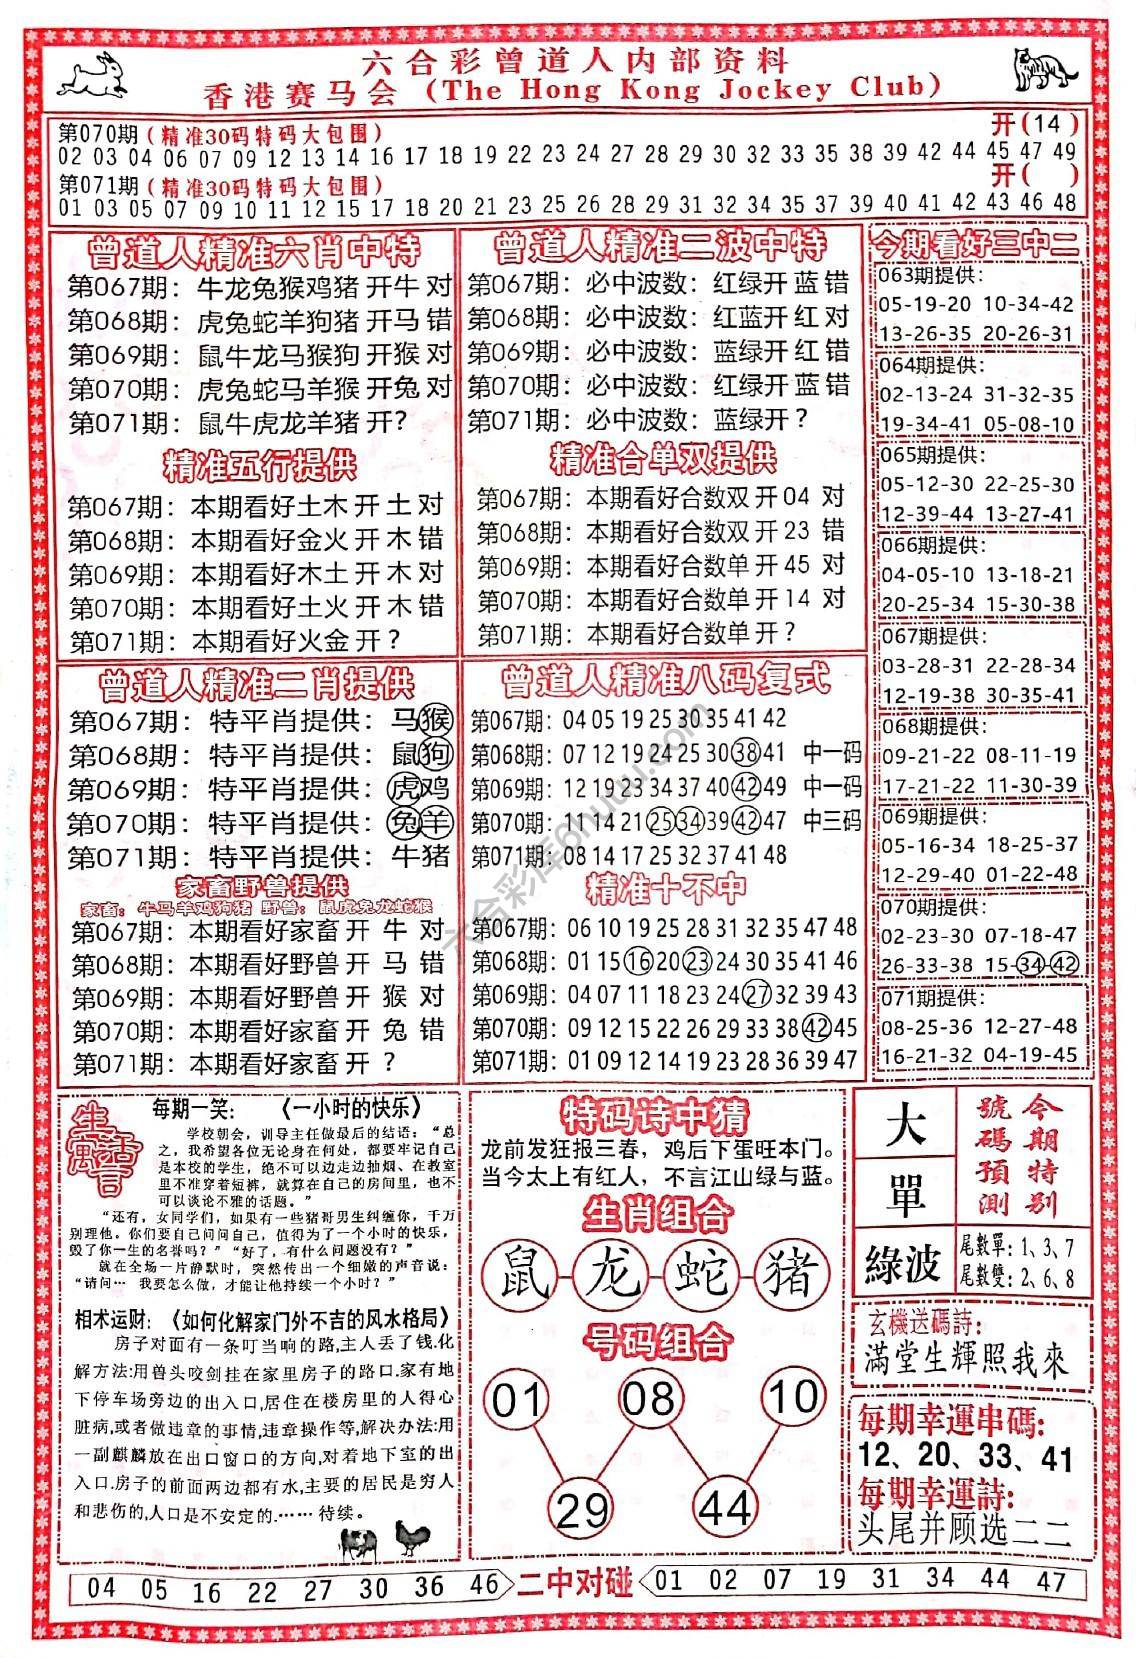 六合彩曾道人内部资料
香港赛马会（The Hong Kong Jockey Club）
第070期(精准30码特码大包围) 开(14)
02 03 04 06 07 09 12 13 14 16 17 18 19 22 23 24 27 28 29 30 32 33 35 38 39 42 44 45 47 49
第071期(精准30码特码大包围) 开( )
01 03 05 07 09 10 11 12 15 17 18 20 21 23 25 26 28 29 31 32 34 35 37 39 40 41 42 43 46 48
曾道人精准六肖中特
第067期：牛龙兔猴鸡猪 开牛 对
第068期：虎兔蛇羊狗猪 开马 错
第069期：鼠牛龙马猴狗 开猴 对
第070期：虎兔蛇马羊猴 开兔 对
第071期：鼠牛虎龙羊猪 开?
精准五行提供
第067期：本期看好土木 开 土 对
第068期：本期看好金火 开 木 错
第069期：本期看好木土 开 木 对
第070期：本期看好土火 开 木 错
第071期：本期看好火金 开 ?
曾道人精准二波中特
第067期：必中波数：红绿开 蓝 错
第068期：必中波数：红蓝开 红 对
第069期：必中波数：蓝绿开 红 错
第070期：必中波数：红绿开 蓝 错
第071期：必中波数：蓝绿开 ?
精准合单双提供
第067期：本期看好合数双 开 04 对
第068期：本期看好合数双 开 23 错
第069期：本期看好合数单 开 45 对
第070期：本期看好合数单 开 14 对
第071期：本期看好合数单 开 ?
今期看好三中二
063期提供：
05-19-20 10-34-42
13-26-35 20-26-31
064期提供：
02-13-24 31-32-35
19-34-41 05-08-10
065期提供：
05-12-30 22-25-30
12-39-44 13-27-41
066期提供：
04-05-10 13-18-21
20-25-34 15-30-38
067期提供：
03-28-31 22-28-34
12-19-38 30-35-41
068期提供：
09-21-22 08-11-19
17-21-22 11-30-39
069期提供：
05-16-34 18-25-37
12-29-40 01-22-48
070期提供：
02-23-30 07-18-47
26-33-38 15-34-42
071期提供：
08-25-36 12-27-48
16-21-32 04-19-45
曾道人精准二肖提供
第067期：特平肖提供：马猴
第068期：特平肖提供：鼠狗
第069期：特平肖提供：虎鸡
第070期：特平肖提供：兔羊
第071期：特平肖提供：牛猪
家畜野兽提供
家畜：牛马羊鸡狗猪 野兽：鼠虎兔龙蛇猴
第067期：本期看好家畜 开 牛 对
第068期：本期看好野兽 开 马 错
第069期：本期看好野兽 开 猴 对
第070期：本期看好家畜 开 兔 错
第071期：本期看好家畜 开 ?
曾道人精准八码复式
第067期：04 05 19 25 30 35 41 42
第068期：07 12 19 24 25 30 38 41 中一码
第069期：12 19 23 34 37 40 42 49 中一码
第070期：11 14 21 25 34 39 42 47 中三码
第071期：08 14 17 25 32 37 41 48
精准十不中
第067期：06 10 19 25 28 31 32 35 47 48
第068期：01 15 16 20 23 24 30 35 41 46
第069期：04 07 11 18 23 24 27 32 39 43
第070期：09 12 15 22 26 29 33 38 42 45
第071期：01 09 12 14 19 23 28 36 39 47
生活寓言
每期一笑：《一小时的快乐》
学校朝会，训导主任做最后的结语：“总
之，我希望各位无论身在何处，都要牢记自己
是本校的学生，绝不可以边走边抽烟、在教室
里不准穿着短裤，就算在自己的房间里，也不
可以谈论不雅的话题。”
“还有，女同学们，如果有一些猪哥男生纠缠你，千万
别理他。你们要自己问问自己，值得为了一个小时的快乐，
毁了你一生的名誉吗？”“好了，有什么问题没有？”
就在全场一片静默时，突然传出一个细嫩的声音说：
“请问… 我要怎么做，才能让他持续一个小时？”
相术运财：《如何化解家门外不吉的风水格局》
房子对面有一条叮当响的路,主人丢了钱.化
解方法:用兽头咬剑挂在家里房子的路口.家有地
下停车场旁边的出入口,居住在楼房里的人得心
脏病,或者做违章的事情,违章操作等,解决办法:用
一副麒麟放在出口窗口的方向,对着地下室的出
入口.房子的前面两边都有水,主要的居民是穷人
和悲伤的,人口是不安定的.……待续。
特码诗中猜
龙前发狂报三春，鸡后下蛋旺本门。
当今太上有红人，不言江山绿与蓝。
生肖组合
鼠 龙 蛇 猪
号码组合
01 08 10
29 44
大
單
綠波
今期特别
號碼預測
尾數單：1、3、7
尾數雙：2、6、8
玄機送碼詩：
滿堂生輝照我來
每期幸運串碼：
12、20、33、41
每期幸運詩：
头尾并顾选二二
04 05 16 22 27 30 36 46 二中对碰 01 02 07 19 31 34 44 47
六合彩库6huuu.com